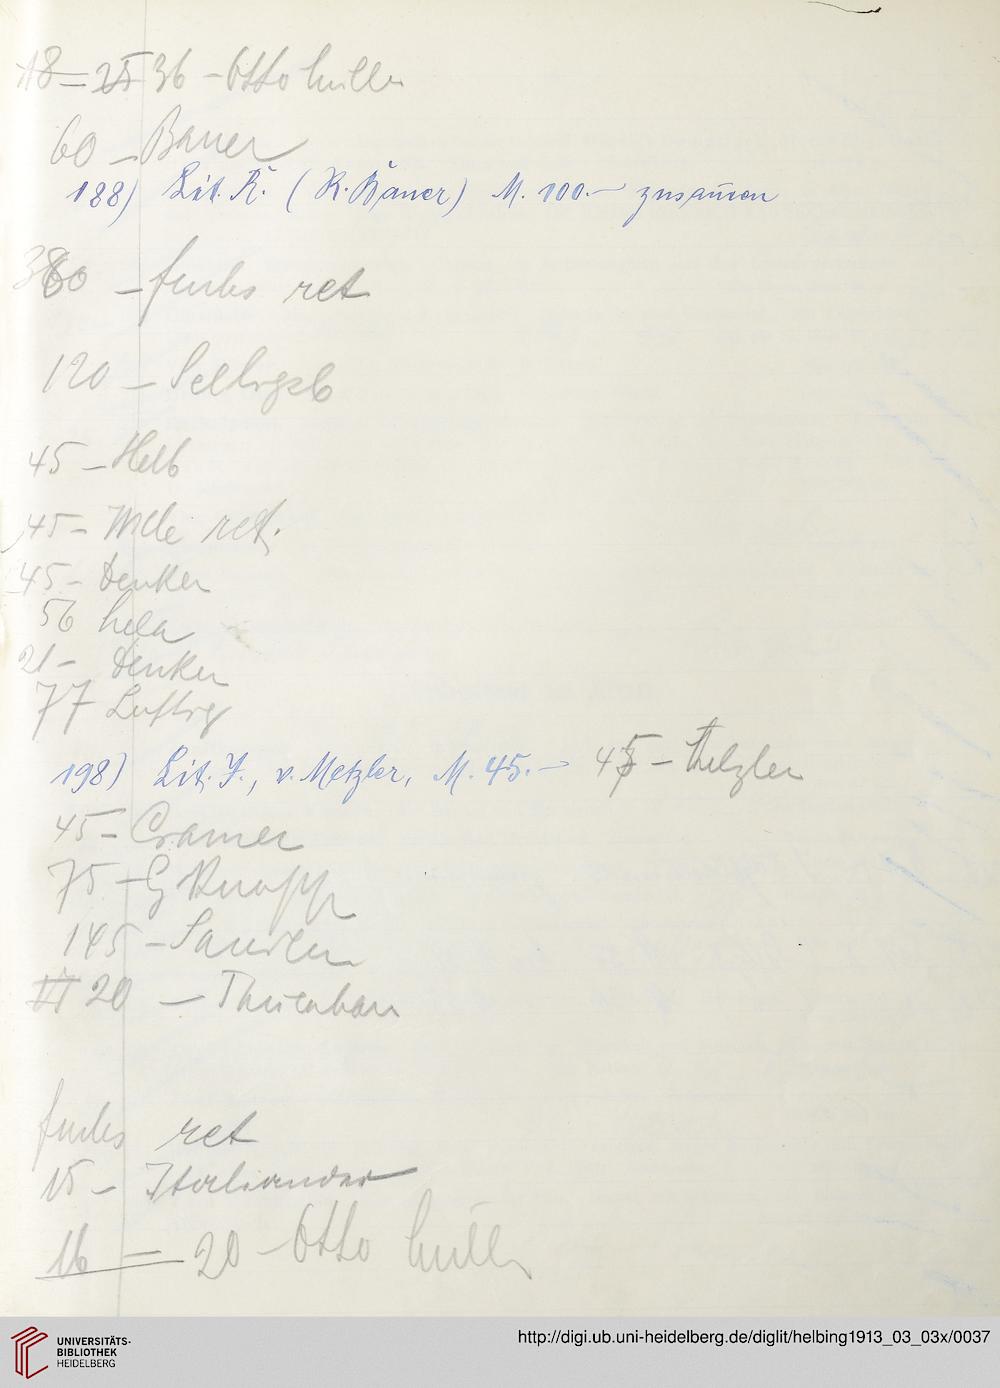 18 = 25 36 - Otto Müller
60 - Bauer
188) Lit. K. (K. Bauer) M. 100.- zusam̄en
380 - Fuchs ret
120 - Seligsb
45 - Helb
45 - ret.
45 - Denker
56 Hela
21 - Denker
77 Luftig
198) Lit. F., v. Metzler, M. 45.- 45 - Metzler
45 - Cramer
75 - G Knapp
145 -
17 20 -
Fuchs ret
15 - Italiander
16 = 20 - Otto Müller
UNIVERSITÄTS-
BIBLIOTHEK
HEIDELBERG
http://digi.ub.uni-heidelberg.de/diglit/helbing1913_03_03x/0037